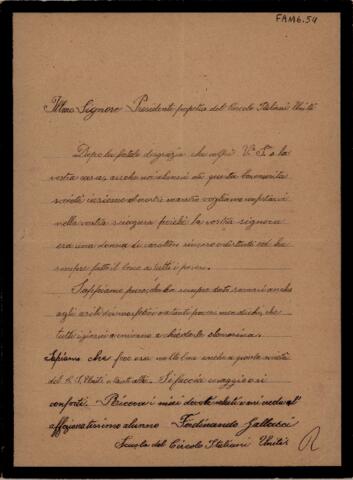 FAM6.54
Illmo Signore Presidente perpetuo del Circolo Italiani Uniti
Dopo la fatale disgrazia che colpì V. S. e la
vostra casa, anche noi alunni di questa benemerita
società insieme al nostro maestro vogliamo
nella vostra sciagura perchè la vostra signora
era una donna di carattere sincero e distinto ed ha
sempre fatto il bene a tutti i poveri.
Sappiamo pure che ha sempre dato soccorsi anche
agli asili d'infanzia e tanti che
tutti i giorni a chiedere la elemosina.
Sapiamo che fece era anche a questa società
del C. I. Uniti e tante altre. Si faccia coraggio e si
conforti. Riceva i miei devoti saluti e mi creda l'
affezionatissimo alunno Ferdinando Gallucci
Scuola del Circolo Italiani Uniti
R